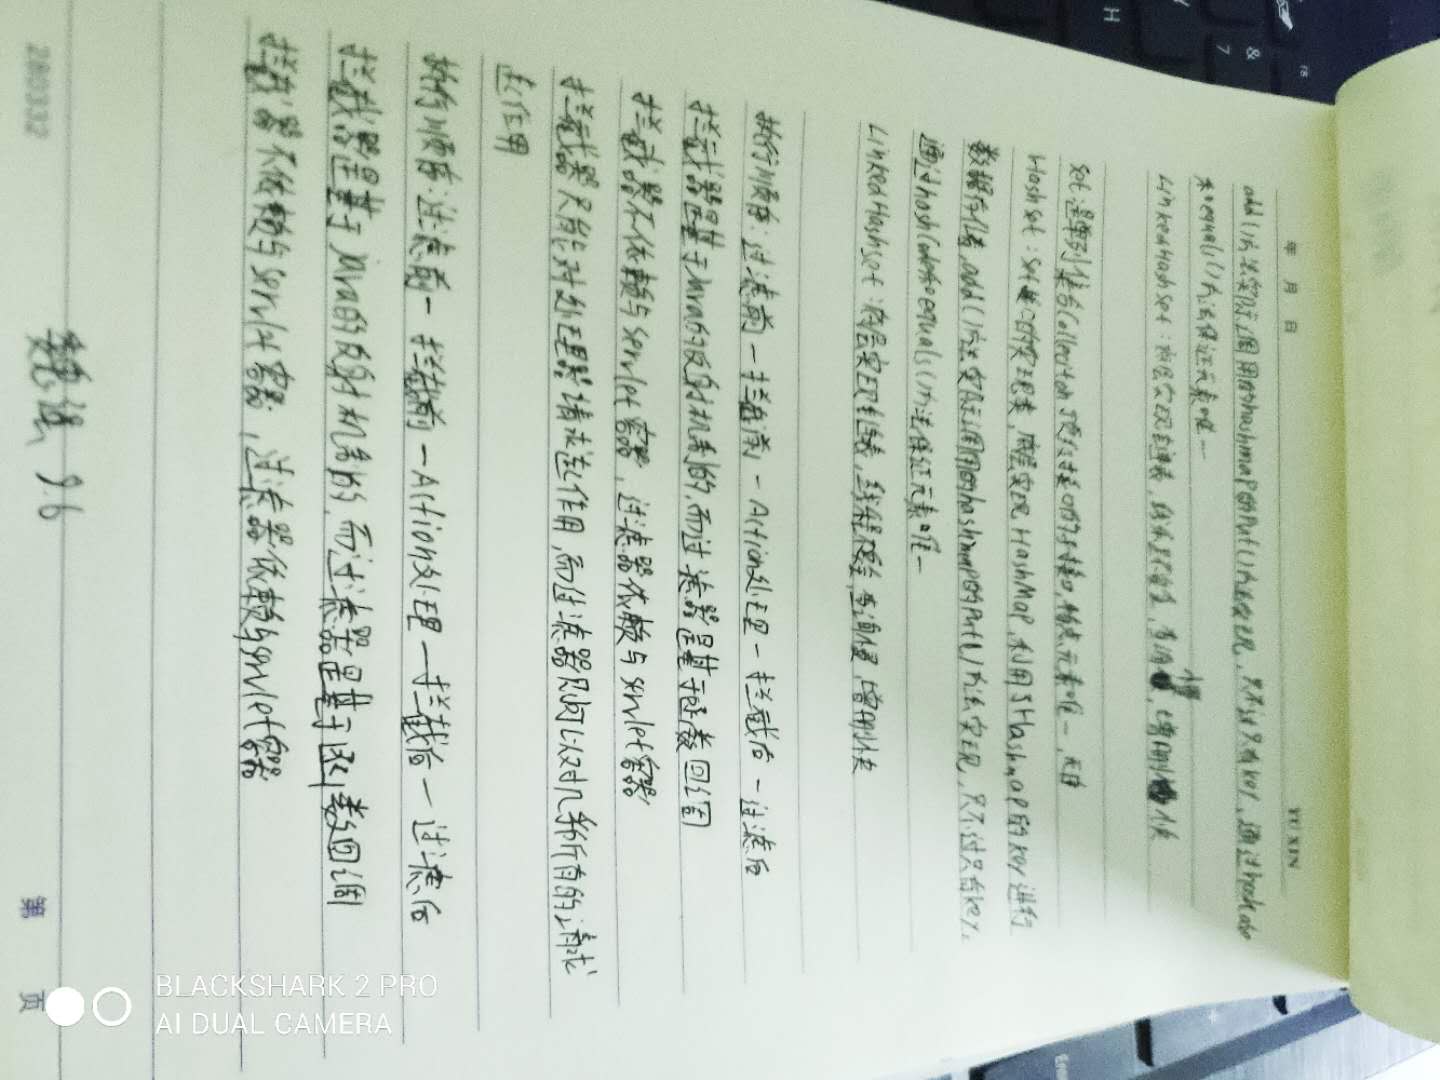 年 月 日
YU XIN
add()方法实际调用的hashmap的put()方法实现,只不过只有key,通过hashcode
和equals()方法保证元素唯一
LinkedHashSet:底层实现链表,线程不安全,查询慢,增删快
Set:是单列集合Collection顶级接口的子接口,特点元素唯一,无序
HashSet:Set接口的实现类,底层实现HashMap,利用了HashMap的key进行
数据存储,add()方法实际调用的hashmap的put()方法实现,只不过只有key,
通过hashCode和equals()方法保证元素唯一
LinkedHashSet:底层实现链表,线程不安全,查询慢,增删快
执行顺序:过滤前一拦截前一Action处理一拦截后一过滤后
拦截器是基于java的反射机制的,而过滤器是基于函数回调
拦截器不依赖与servlet容器,过滤器依赖与servlet容器
拦截器只能对处理器请求起作用,而过滤器则可以对几乎所有的请求
起作用
执行顺序:过滤前一拦截前一Action处理一拦截后一过滤后
拦截器是基于java的反射机制的,而过滤器是基于函数回调
拦截器不依赖与servlet容器,过滤器依赖与servlet容器
9.6
2803332
第 页
BLACKSHARK 2 PRO
AI DUAL CAMERA